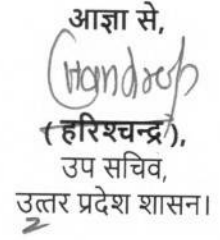 आज्ञा से,
( हरिश्चन्द्र ),
उप सचिव,
उत्तर प्रदेश शासन।
2